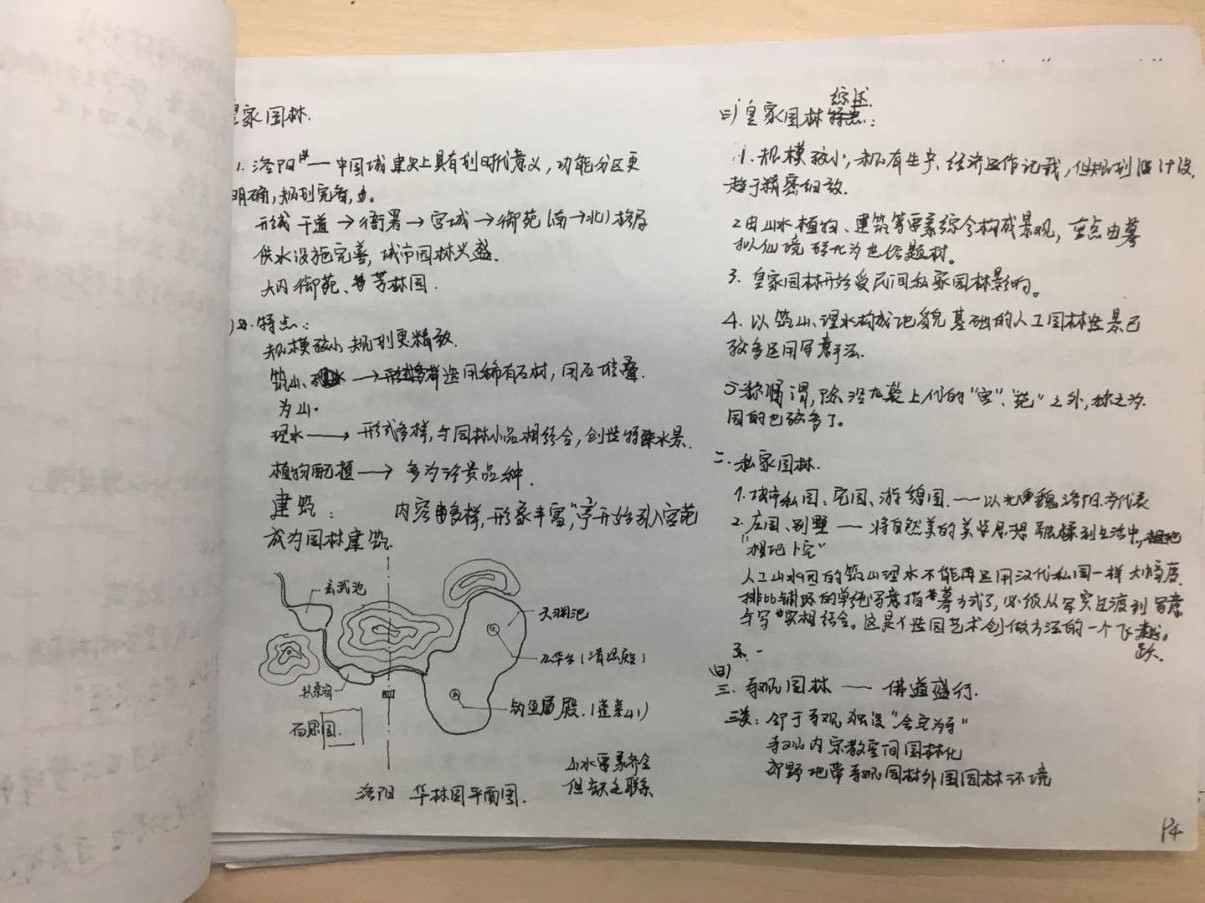 皇家园林.
1. 洛阳 — 中国城建史上具有划时代意义，功能分区更
明确，规划完善，
形成 干道→衙署→宫城→御苑（南→北）格局
供水设施完善，城市园林兴盛.
大内御苑、芳林园.
特点：
规模较小，规划更精致.
筑山、→ 选用稀有石材，用石堆叠.
为山.
理水 → 形式多样，与园林小品相结合，创造特殊水景.
植物配植 → 多为珍贵品种.
建筑： 内容多样，形象丰富，"亭"开始引入宫苑
成为园林建筑.
玄武池
天渊池
九华台（清凉殿）
扶桑海
钓鱼 殿.（蓬莱山）
百果园.
山水要素齐全
但缺乏联系
洛阳 华林园平面图.
综述.
(三) 皇家园林特点：
1. 规模较小，规划设计
趋于精密细致.
2. 由山水植物、建筑等要素综合构成景观，重点由摹
拟仙境转化为世俗题材。
3. 皇家园林开始受民间私家园林影响。
4. 以筑山、理水构成地貌基础的人工园林造景已
较多运用写意手法.
5 称谓，除沿袭上代的"宫"、"苑"之外，称之为
园的已较多了。
二、私家园林.
1. 城市私园、宅园、游憩园. — 以北魏洛阳为代表
2. 庄园、别墅 — 将自然美的美学思想 到生活中，
"相地卜宅"
人工山水园的筑山理水不能再运用汉代私园一样大幅度
排比铺陈的单纯写意摹方式了，必须从写实过渡到写意
与写实相结合。这是造园艺术创做方法的一个飞
跃.
三. 寺观园林 — 佛道盛行.
三类：邻于寺观独设"舍宅为寺"
寺观内宗教空间园林化
郊野地带寺观园林外围园林环境
P4